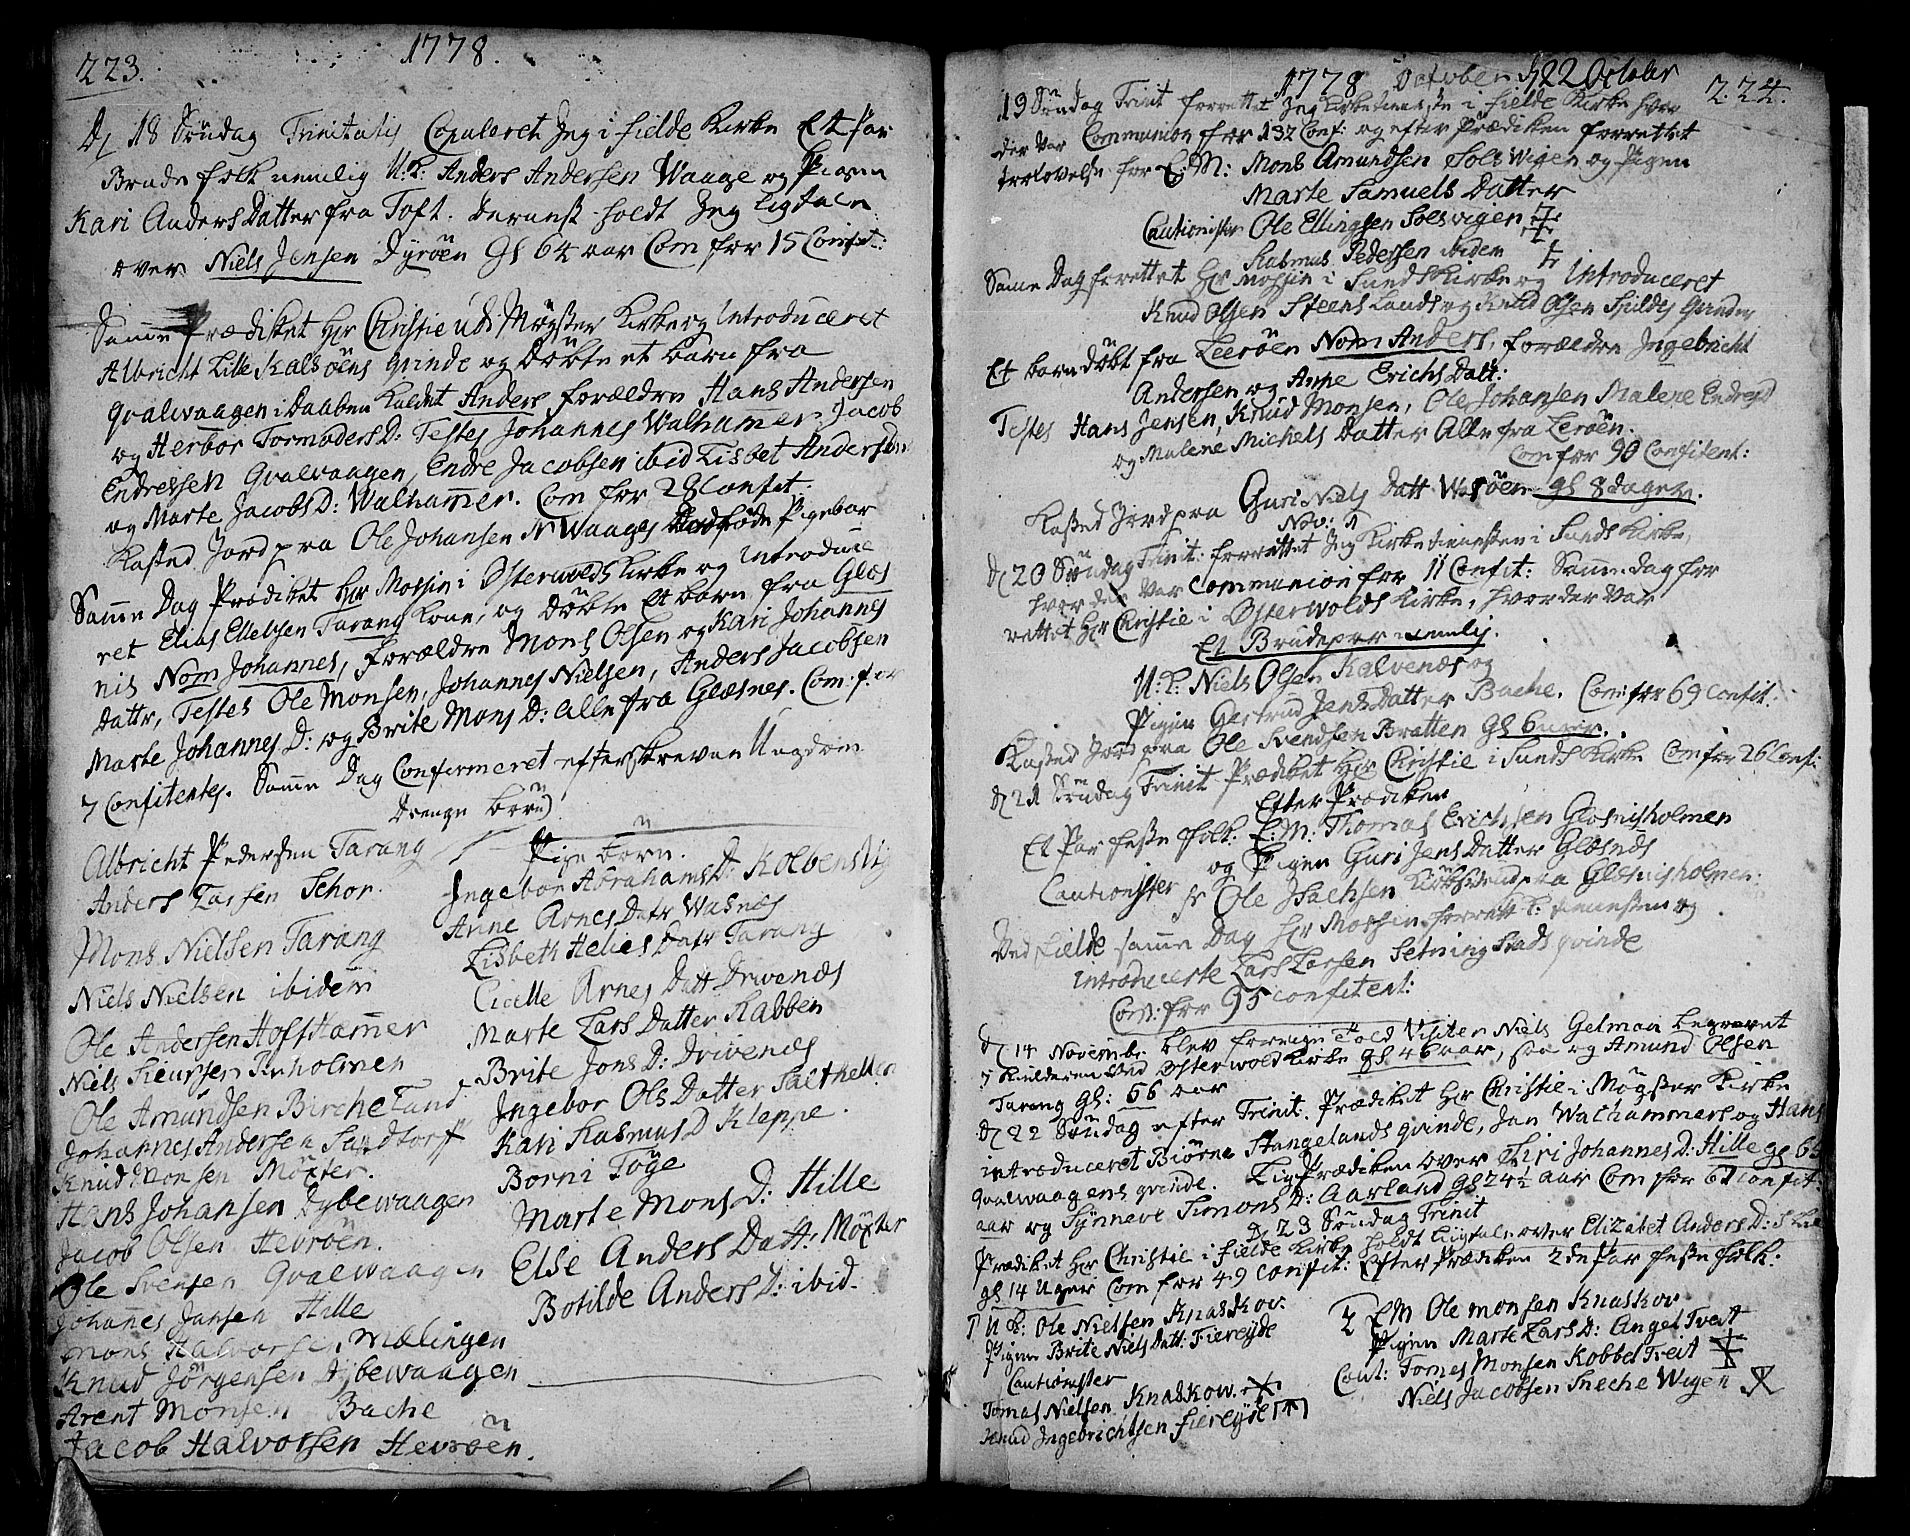 223.
1778.
D 18 Söndag Trinitatis Copuleret Jeg i Fielde Kirke Et Par
Brude folk nemlig U: K: Anders Andersen Waage og Pigen
Kari Anders Datter fra Toft. dernest holdt Jeg Ligtale
over Niels Jensen Dyröen Gl 64 aar Com for 15 Confit:
Samme Prædiket Hr Christie udi Mögster Kirke og Introduceret
Albricht Lille Kalsöens qvinde og Döbte et barn fra
Qvalwaagen i Daaben kaldet Anders forældre Hans Andersen
og Herbor Tormoders D: Testes Johannes Walhammer, Jacob
Endressen Qvalwaagen, Endre Jacobsen ibid Lisbet Anders
og Marte Jacobs D: Walhammer. Com for 28 Confit.
Kasted Jord paa Ole Johansen N Waages Pigebar
Samme Dag Prædiket Hr Mossin i Østerwolds Kirke og Introduce
ret Elias Ellebsen Tarang Kone, og Döbte Et barn fra Glæs
nis Nom Johannes, forældre Mons Olsen og Kari Johannes
Dattr, Testes Ole Monsen, Johannes Nielsen, Anders Jacobsen
Marte Johannes D: og Brite Mons D: alle fra Glæsnes. Com: for
7 Confitentes. Samme Dag Confirmeret efterskrevne Ungdom
Drenge börn
Albricht Pedersen Tarang
Anders Larsen Schor.
Mons Nielsen Tarang
Niels Nielsen ibidem
Ole Andersen Hoffhammer
Niels Siursen Runholmen
Ole Amundsen Bircheland
Johannes Andersen Sandtorf
Knud Monsen Möxter.
Hans Johansen Dybewaagen
Jacob Olsen Hevröen.
Ole Svensen Qvalwaagen
Johannes Jansen Hille
Mons Halvorsen Mælingen
Knud Jörgensen Dybewaagen
Arent Monsen Bache
Jacob Halvorsen Hevröen.
Pige börn.
Ingebor Abrahams D: Kolbensvig
Anne Arnes Datr Wasnæs
Lisbeth Helies Datr Tarang
Cicelle Arnes Datt Drivenæs
Marte Lars Datter Rabben
Brite Jons D: Drivenæs
Ingebor Ols Datter Salthella
Kari Rasmus D Kleppe.
Borni Töge
Marte Mons D: Hille
Else Anders Datt: Möxter
Botilde Anders D: ibid.
1778 October 22 October
224.
19 Söndag Trinit forrettet Jeg Kirketienesten i Fielde Kirke hvor
der var Communion for 132 Conf: og efter Prædiken forrettet
trolovelse for E: M: Mons Amundsen Solswigen og Pigen
Marte Samuels Datter
Cautionister Ole Ellingsen Solsvigen
Rasmus Pedersen ibidem
Samme Dag forettet Hr Mossin i Sunds Kirke og Introduceret
Knud Olsen Steensland og Knud Olsen Spildes qvinder
Et barn döbt fra Leeröen Nom Anders, forældre Ingebricht
Andersen og Anne Erichs Datt:
Testes Hans Jensen, Knud Monsen, Ole Johansen Malene Endres D
og Malene Michels Datter alle fra Leröen.
Com for 90 Confitent:
Kasted Jord paa Guri Niels Datt Waröen gl 8 dage
Nov: 1
D 20 Söndag Trinit: forrettet Jeg Kirketienesten i Sunds Kirke,
hvor der var Communion for 11 Confit: Samme dag for
rettet Hr Christie i Østerwolds Kirke, hvor der var
Et Brudepar nemlig.
U: K: Niels Olsen Kalvenæs og
Pigen Gertrud Jens Datter Bache. Com: for 69 Confit:
Kasted Jord paa Ole Svendsen Bratten Gl 6 uger.
D 21 Söndag Trinit Prædiket Hr Christie i Sunds Kirke Com for 26 Conf:
Efter Prædiken
Et Par feste folk. E: M: Thomas Erichsen Glæsnisholmen
og Pigen Guri Jens Datter Glæsnæs
Cautionister Ole Isachsen paa Glæsnisholmen
Ved Fielde samme Dag Hr Mossin forrett K: tienesten og
Introducerte Lars Larsen Setning Stads qvinde
Com: for 95 confitent:
D 14 Novembr blev forrige Told Visiter Niels Gelman begravet
ved Østerwold Kirke gl 46 aar, saa og Amund Olsen
Tarang gl: 66 aar
D 22 Söndag efter Trinit. Prædiket Hr Christie i Mögster Kirke
introduceret Biörne Stangelands qvinde, Jan Walhammers og Hans
Qvalwaagens qvinde. Lig Prædiken over Siri Johannes D: Hille gl 65
aar og Synneve Simons D: Aarland gl 24½ aar Com for 61 Confit:
D 23 Söndag Trinit
Prædiket Hr Christie i Fielde Kirke holdt Ligtale over Elizabet Anders D:
gl 14 Uger Com for 49 Confit: Efter Prædiken 2de Par feste folk.
1 U K: Ole Nielsen Knaskov.
Pigen Brite Niels Datt: Fiereyde
Cautionister
Tomas Nielsen Knaskow
Knud Ingebrichtsen Fiereyde
2 EM Ole Monsen Knaskov
Pigen Marte Lars D: AngelTveit
Caut: Tomes Monsen KobbelTveit
Niels Jacobsen Sneche Wigen